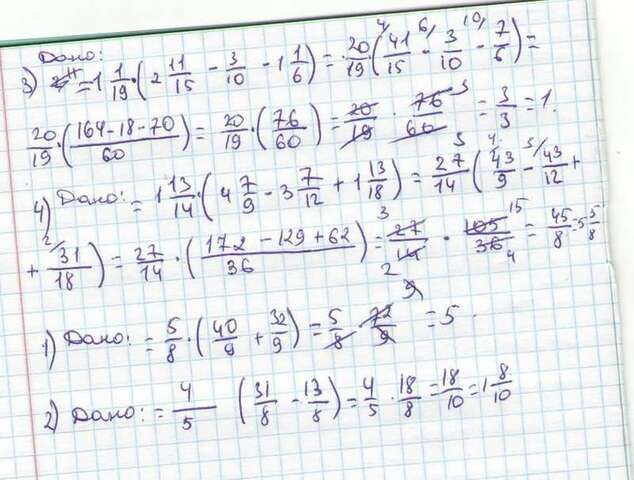 Дано:
3) = 1 1/19 · (2 11/15 - 3/10 - 1 1/6) = 20/19 · (41/15 - 3/10 - 7/6) =
20/19 · (164-18-70/60) = 20/19 · (76/60) = 20/19 · 76/60 = 3/3 = 1.
4) Дано: = 1 13/14 · (4 7/9 - 3 7/12 + 1 13/18) = 27/14 (43/9 - 43/12 +
+ 31/18) = 27/14 · (172 - 129 + 62/36) = 27/14 · 105/36 = 45/8 = 5 5/8
1) Дано: = 5/8 · (40/9 + 32/9) = 5/8 · 72/9 = 5.
2) Дано: = 4/5 (31/8 - 13/8) = 4/5 · 18/8 = 18/10 = 1 8/10